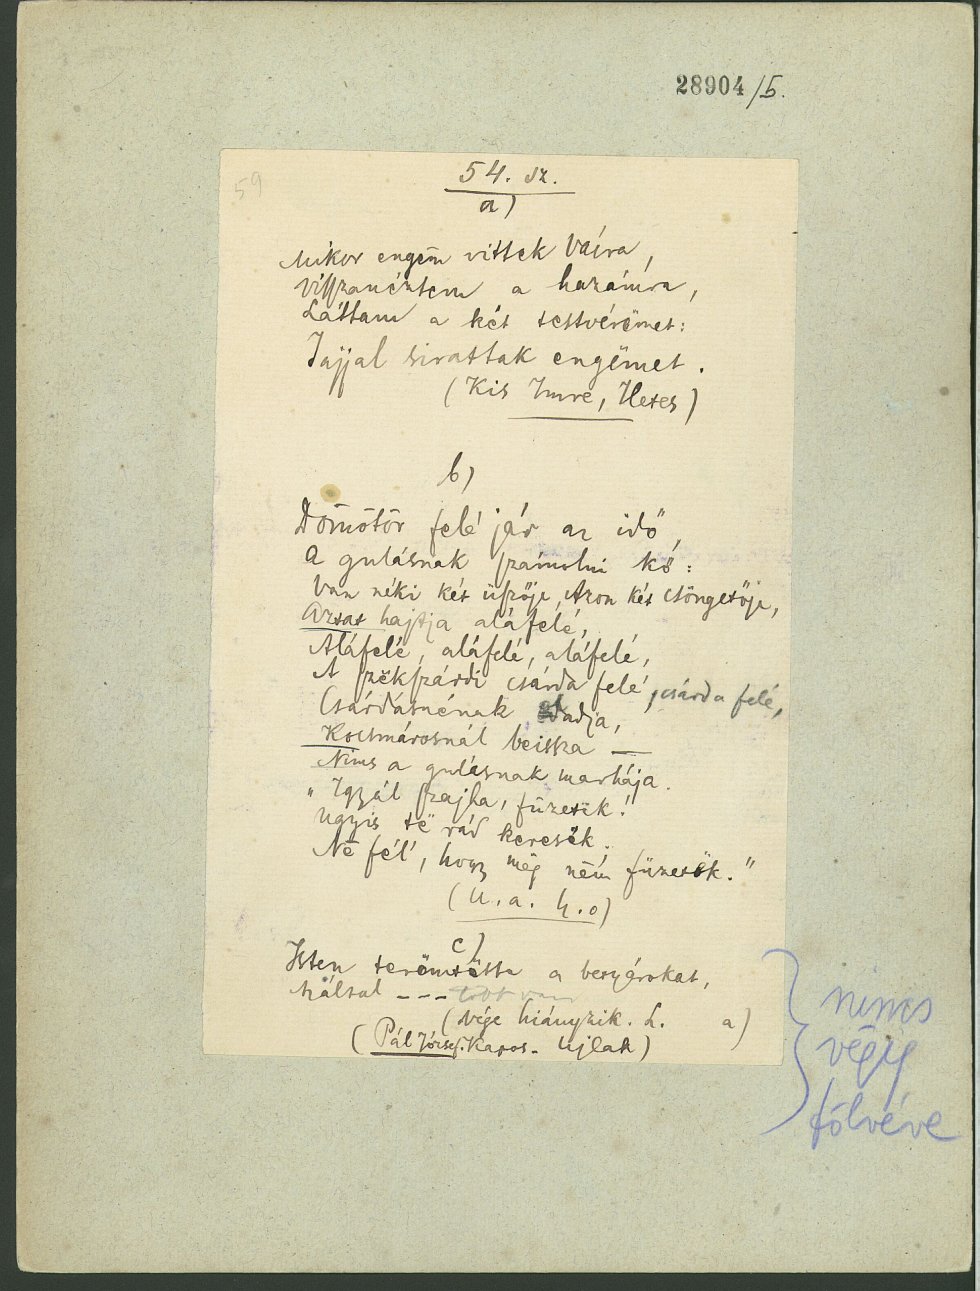 28904/5.
59
54. sz.
a)
Mikor engëm vittek Vácra,
Visszanéztem a hazámra,
Láttam a két testvérëmet:
Jajjal sirattak engëmet.
(Kis Imre, Hetes)
b)
Dömötör felé jár az idő,
A gulásnak számolni kő:
Van néki két üszője, Azon két csöngetője,
Aztat hajtja aláfelé,
Aláfelé, aláfelé, aláfelé,
A szëkszárdi csárda felé, csárda felé,
Csárdásnénak adja,
Kocsmárosnál beissza —
Nincs a gulásnak marhája.
„Igyál szajha, füzetëk!
Ugyis të rád keresëk.
Në fél', hogy mëg nëm füzetëk."
(U. a. h. o)
c)
Isten terömtötte a betyárokat,
Azáltal --- több van
(Vége hiányzik. L. a)
(Pál József. Kapos-Ujlak)
nincs
végig
fölvéve